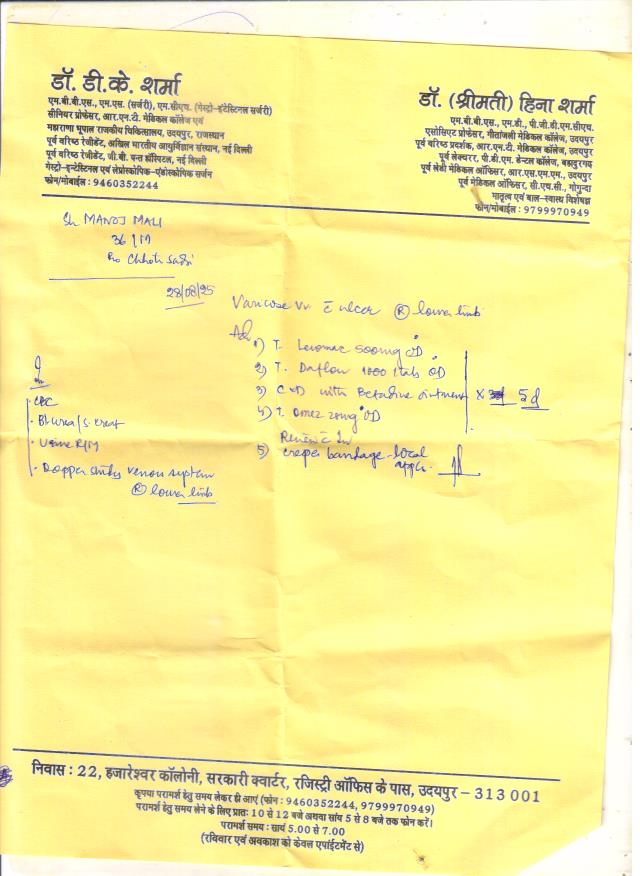 डॉ. डी.के. शर्मा
एम.बी.बी.एस., एम.एस. (सर्जरी), एम.सीएच. (गेस्ट्रो-इंटेस्टिनल सर्जरी)
सीनियर प्रोफेसर, आर.एन.टी. मेडिकल कॉलेज एवं
महाराणा भूपाल राजकीय चिकित्सालय, उदयपुर, राजस्थान
पूर्व वरिष्ठ रेजीडेंट, अखिल भारतीय आयुर्विज्ञान संस्थान, नई दिल्ली
पूर्व वरिष्ठ रेजीडेंट, जी.बी. पन्त हॉस्पिटल, नई दिल्ली
गेस्ट्रो-इन्टेस्टिनल एवं लेप्रोस्कोपिक-एंडोस्कोपिक सर्जन
फोन/मोबाईल : 9460352244
डॉ. (श्रीमती) हिना शर्मा
एम.बी.बी.एस., एम.डी., पी.जी.डी.एम.सीएच.
एसोसिएट प्रोफेसर, गीतांजली मेडिकल कॉलेज, उदयपुर
पूर्व वरिष्ठ प्रदर्शक, आर.एन.टी. मेडिकल कॉलेज, उदयपुर
पूर्व लेक्चरर, पी.डी.एम. डेन्टल कॉलेज, बहादुरगढ़
पूर्व लेडी मेडिकल ऑफिसर, आर.एस.एम.एम., उदयपुर
पूर्व मेडिकल ऑफिसर, सी.एच.सी., गोगुन्दा
मातृत्व एवं बाल-स्वास्थ्य विशेषज्ञ
फोन/मोबाईल : 9799970949
Sh MANOJ MALI
36 / M
R/o Chhoti Sadri
28/08/25
Varicose Vv c̄ ulcer Ⓡ lower limb
Adv
1) T. Levomac 500mg OD
2) T. Daflon 1000 1tab OD
3) C & D with Betadine ointment x 5d
4) T. Omez 20mg OD
Review c̄ Inv
5) crepe bandage - local
appln.
Inv
CBC
Bl urea / S. creat
Urine R/M
Dopper study venous system
Ⓡ lower limb
निवास : 22, हजारेश्वर कॉलोनी, सरकारी क्वार्टर, रजिस्ट्री ऑफिस के पास, उदयपुर - 313 001
कृपया परामर्श हेतु समय लेकर ही आएं (फोन : 9460352244, 9799970949)
परामर्श हेतु समय लेने के लिए प्रातः 10 से 12 बजे अथवा सांय 5 से 8 बजे तक फोन करें।
परामर्श समय : सायं 5.00 से 7.00
(रविवार एवं अवकाश को केवल एपॉईंटमेंट से)